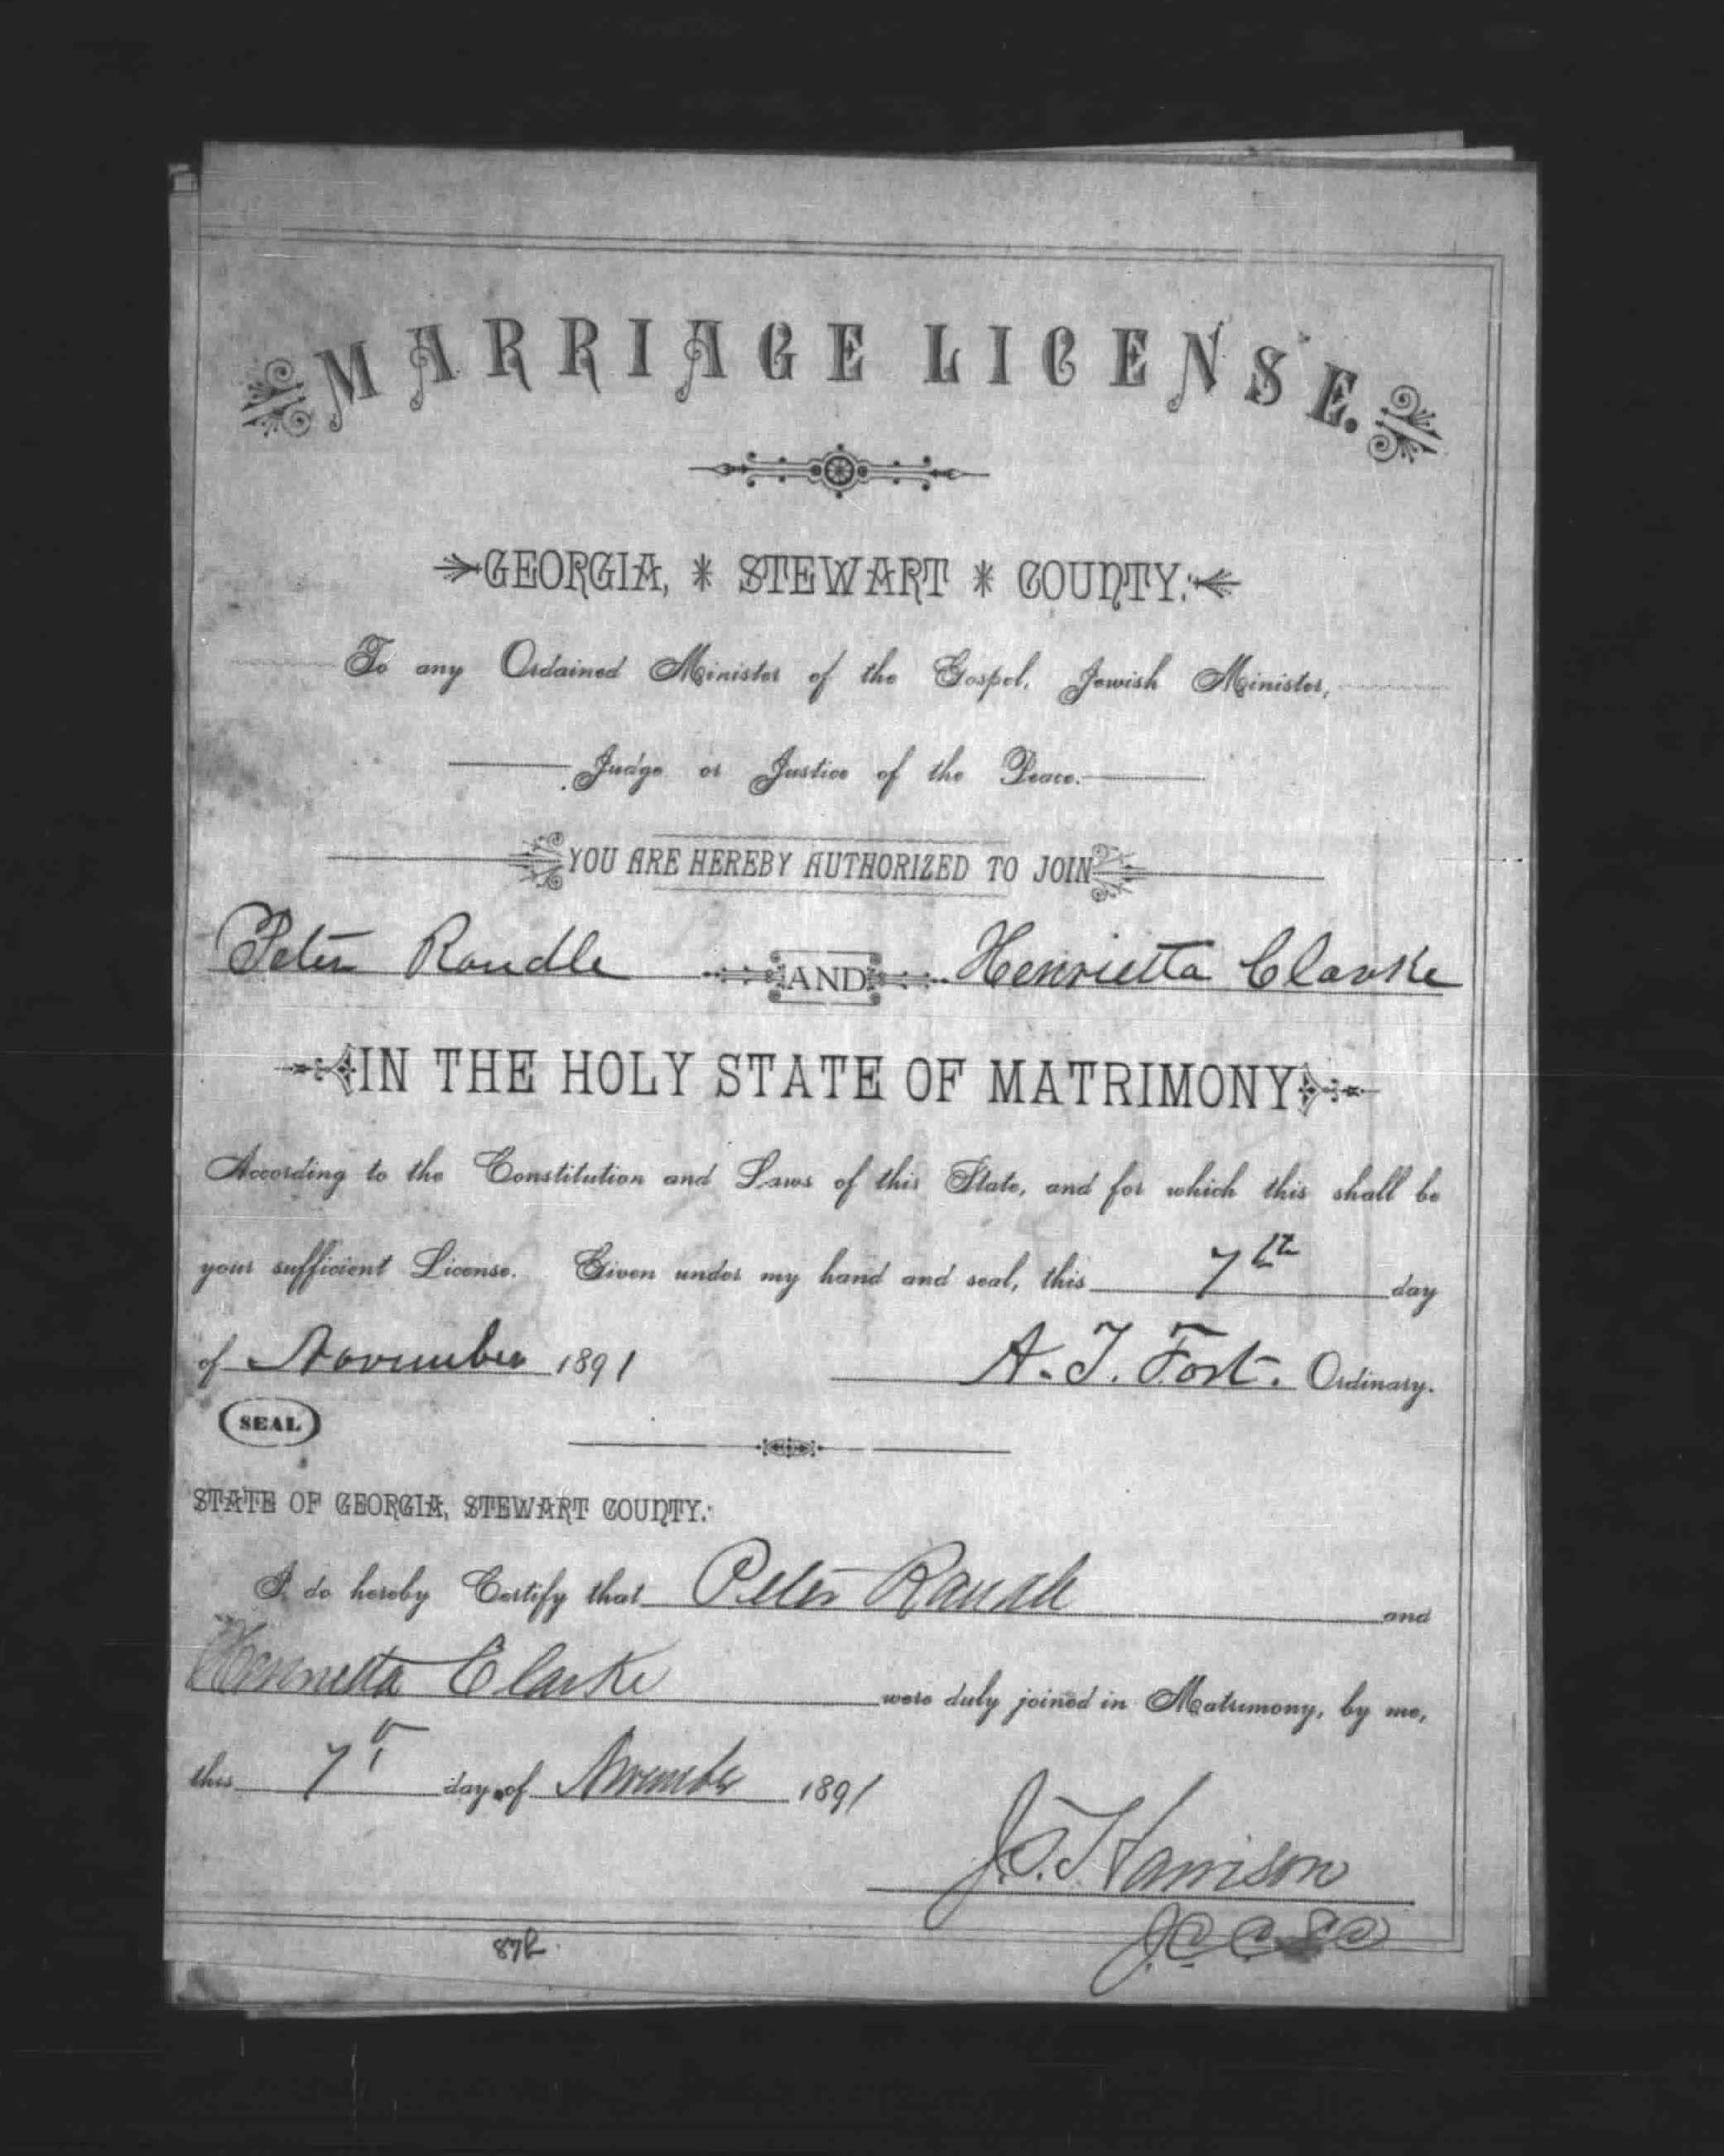 MARRIAGE LICENSE.
GEORGIA, * STEWART * COUNTY:
To any Ordained Minister of the Gospel, Jewish Minister,
Judge or Justice of the Peace.
YOU ARE HEREBY AUTHORIZED TO JOIN
Peter Randle AND Henrietta Clarke
IN THE HOLY STATE OF MATRIMONY
According to the Constitution and Laws of this State, and for which this shall be
your sufficient License. Given under my hand and seal, this 7th day
of November 1891 A. T. Fort. Ordinary.
SEAL
STATE OF GEORGIA, STEWART COUNTY:
I do hereby Certify that Peter Randle and
Henrietta Clarke were duly joined in Matrimony, by me,
this 7th day of November 1891
J. T. Harrison